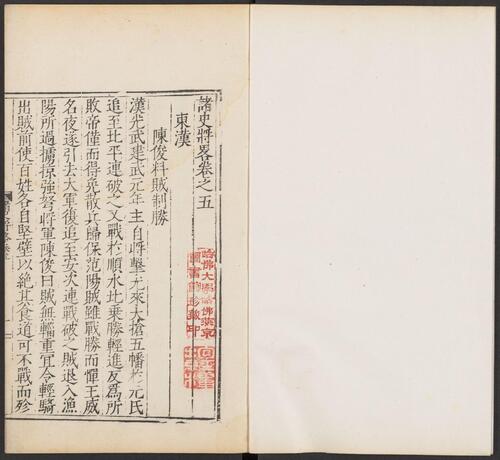 諸史將畧卷之五
東漢
陳俊料賊制勝
漢光武建武元年主自將擊尤來大搶五幡於元氏
追至北平連破之又戰於順水北乗勝輕進反為所
敗帝僅而得免散兵歸保范陽賊雖戰勝而憚王威
名夜遂引去大軍復追至安次連戰破之賊退入漁
陽所過擄掠強弩將軍陳俊曰賊無輜重宜令輕騎
出賊前使百姓各自堅壁以絶其食道可不戰而殄
哈佛大學哈佛漢和
圖書館珍藏印